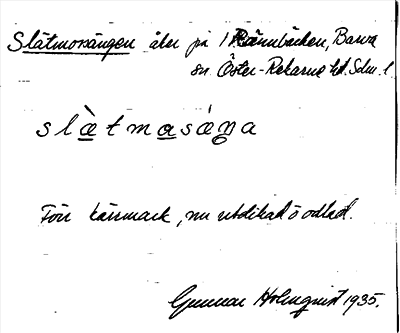 Slåtmorängen åker på 1 Rännbäcken, Barva
sn Öster-Rekarne hd. Sdm. l.
slæ̀tmasáŋa
Förr kärrmark, nu utdikad o odlad.
Gunnar Holmqvist 1935.